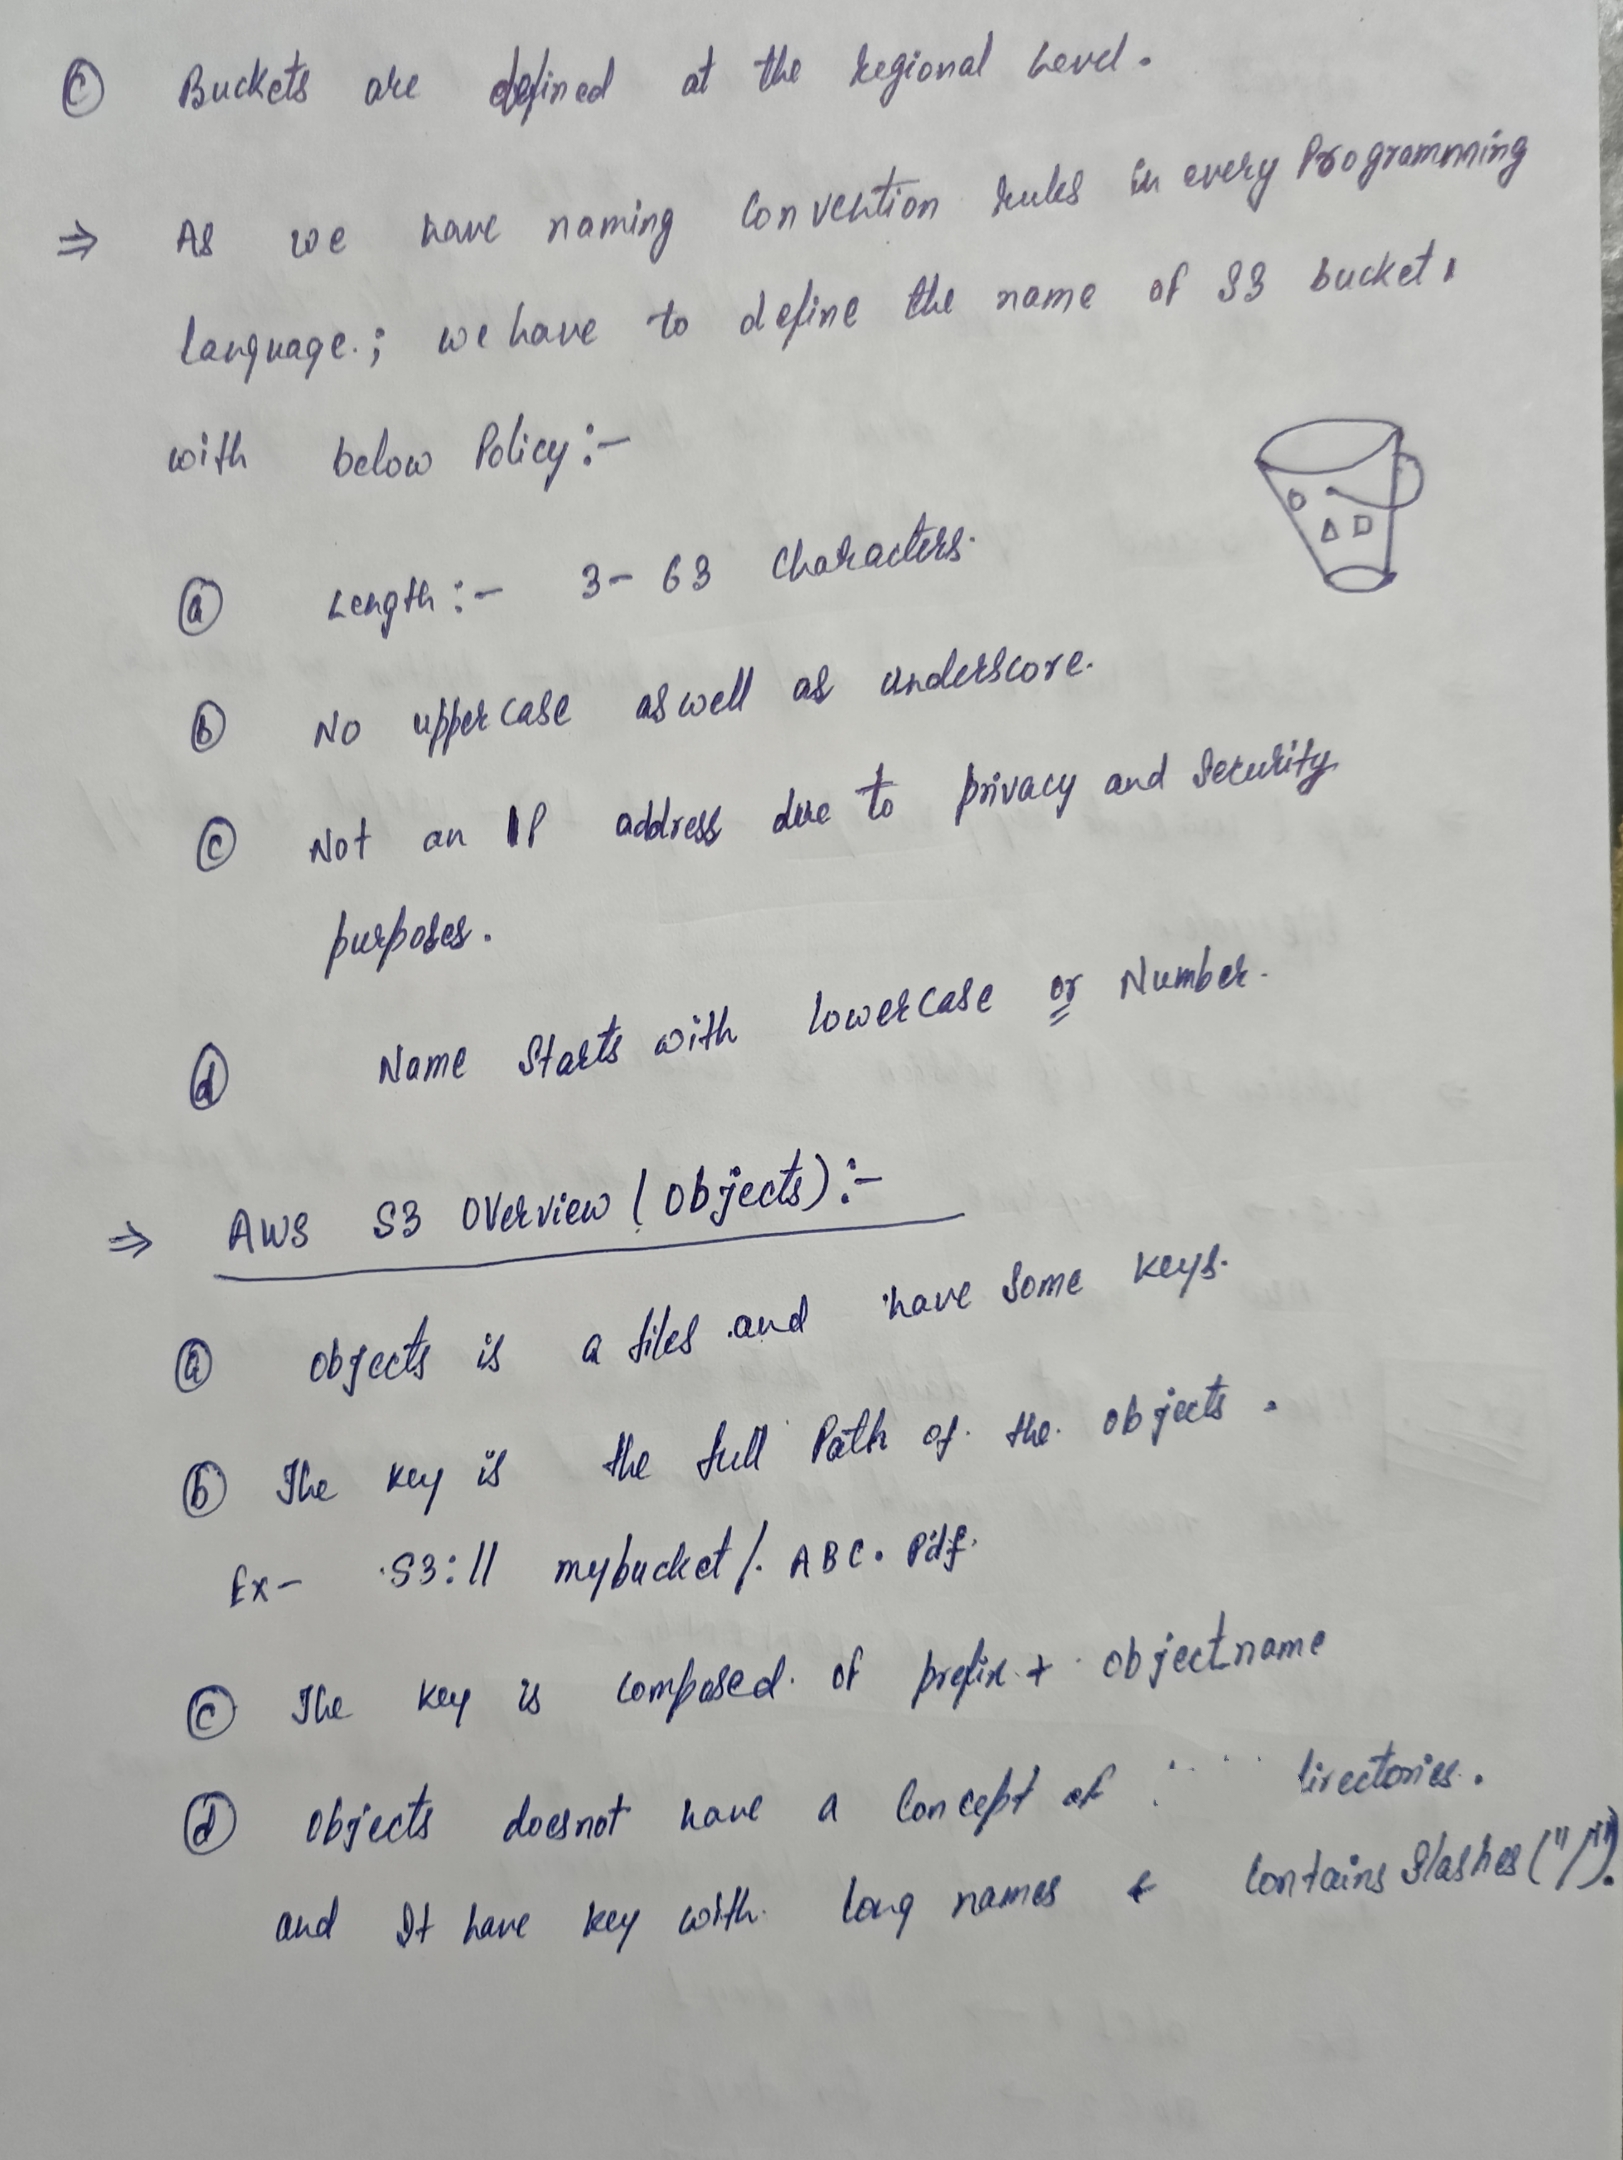 ⓒ Buckets are defined at the regional Level.
⇒ As we have naming Convention rules in every Programming
language.; we have to define the name of S3 bucket.
with below Policy:-
ⓐ Length:- 3-63 Characters.
ⓑ No uppercase as well as underscore.
ⓒ Not an IP address due to privacy and Security
purposes.
ⓓ Name Starts with lowercase or Number.
⇒ AWS S3 Overview (Objects):-
ⓐ Objects is a files and have Some keys.
ⓑ The key is the full Path of the objects.
Ex- S3:// mybucket/. ABC. Pdf.
ⓒ The key is composed. of prefix + objectname
ⓓ Objects doesnot have a Concept of directories.
and It have key with long names & Contains Slashes ("/").